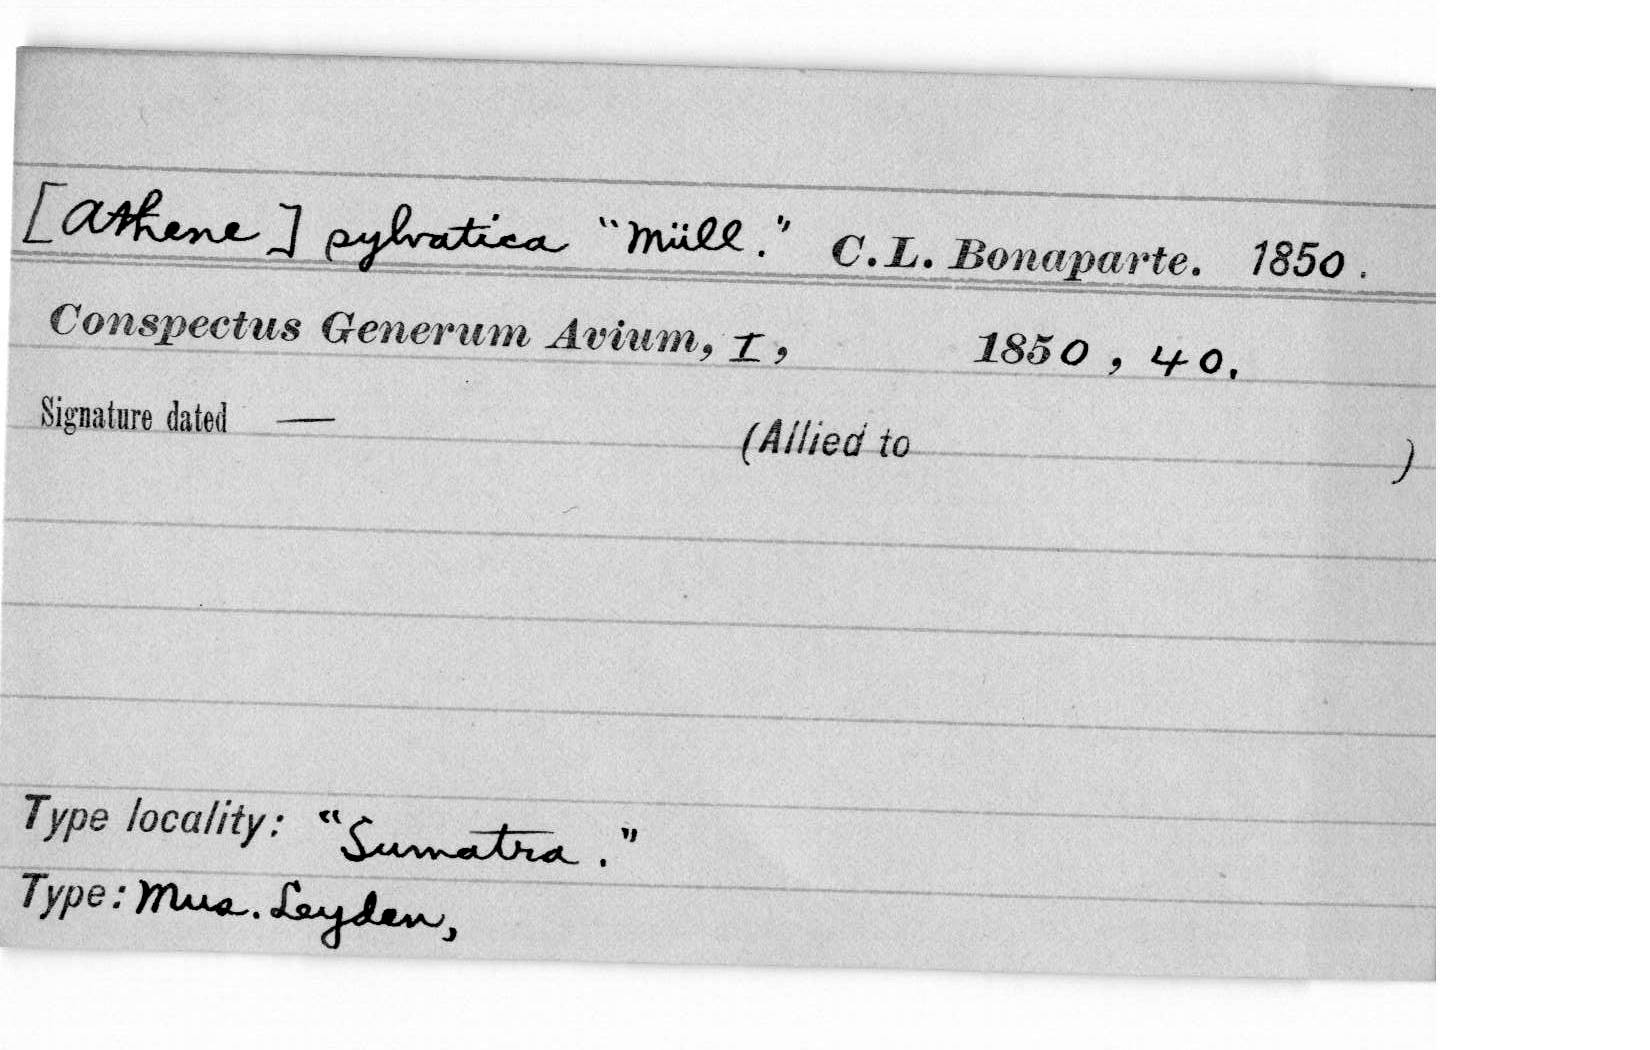 [Athene] sylvatica "Müll." C.L. Bonaparte. 1850.
Conspectus Generum Avium, I, 1850, 40.
Signature dated — (Allied to )
Type locality: "Sumatra."
Type: Mus. Leyden,